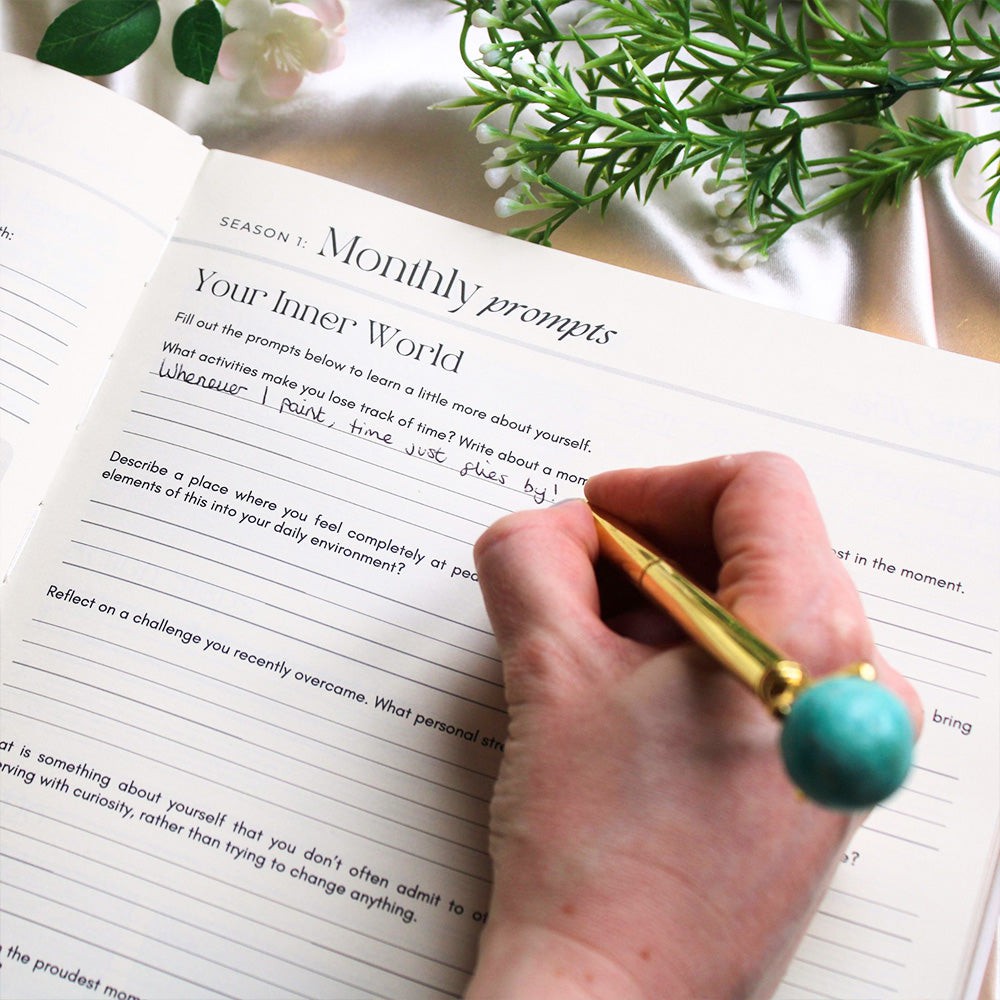 th:
SEASON 1: Monthly prompts
Your Inner World
Fill out the prompts below to learn a little more about yourself.
What activities make you lose track of time? Write about a mom st in the moment.
Whenever I paint, time just flies by!
Describe a place where you feel completely at pea bring
elements of this into your daily environment?
Reflect on a challenge you recently overcame. What personal stre e?
at is something about yourself that you don't often admit to ot
erving with curiosity, rather than trying to change anything.
the proudest mom